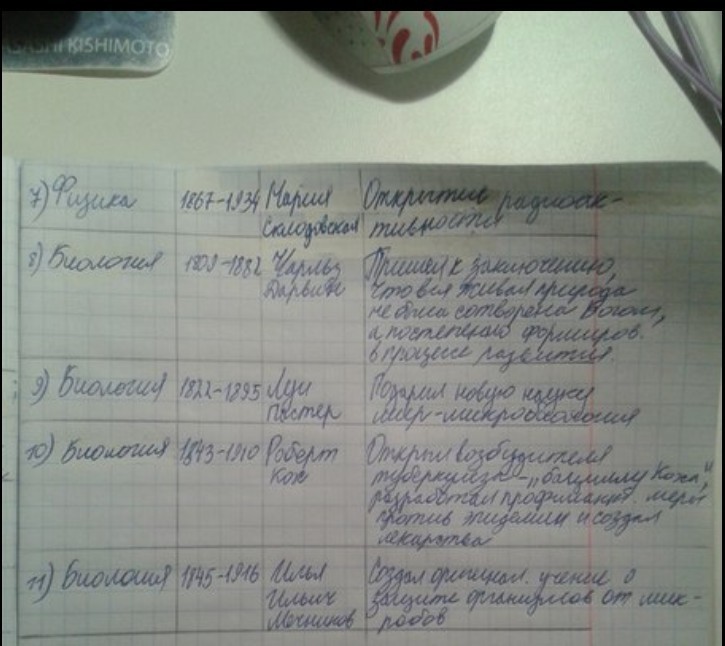 SASHI KISHIMOTO
7) Физика 1867-1934 Мария Открытие радиоак-
Склодовская тивности
8) Биология 1809-1882 Чарльз Пришел к заключению,
Дарвин что вся живая природа
не была сотворена Богом,
а постепенно формиров.
в процессе развития.
9) Биология 1822-1895 Луи Подарил новую науку
Пастер мир-микробиология
10) Биология 1843-1910 Роберт Открыл возбудителя
Кох туберкулеза-„бациллу Коха",
разработал профилакт. меры
против эпидемии и создал
лекарства
11) Биология 1845-1916 Илья Создал оригинал. учение о
Ильич защите организмов от мик-
Мечников робов